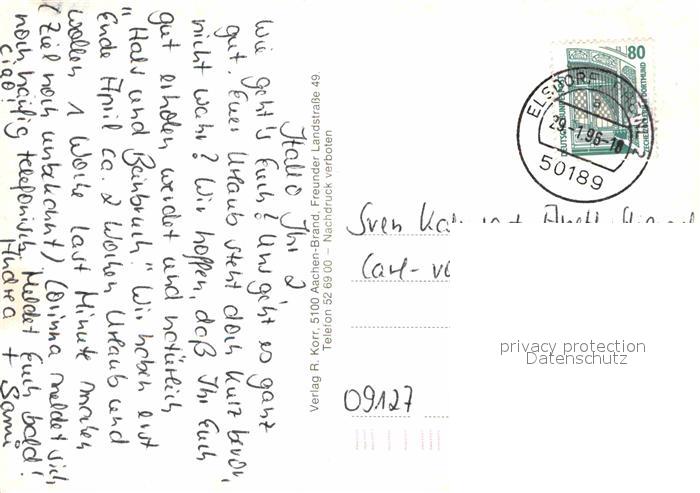 Hallo Ihr 2,
Wie geht's Euch? Uns geht es ganz
gut. Euer Urlaub steht doch kurz bevor,
nicht wahr? Wir hoffen, daß Ihr Euch
gut erholen werdet und natürlich
"Hals und Beinbruch." Wir haben erst
Ende April ca. 2 Wochen Urlaub und
wollen 1 Woche Last Minute machen
(Ziel noch unbekannt) Corinna meldet sich
noch häufig telefonisch. Meldet Euch bald!
Ciao! Andrea + Sami
Verlag R. Korr, 5100 Aachen-Brand, Freunder Landstraße 49,
Telefon 52 69 00 – Nachdruck verboten
80
DEUTSCHE BUNDESPOST
ZECHE DORTMUND
ELSDORF, RHEINL 2
a
29.-1.96-18
50189
Sven
Carl-v
09127
privacy protection
Datenschutz